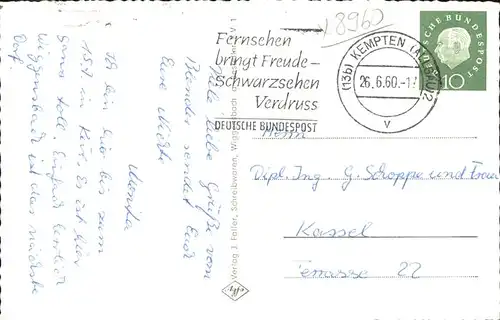 8960
Fernsehen
bringt Freude –
Schwarzsehen
Verdruss
DEUTSCHE BUNDESPOST
(13b) KEMPTEN (ALLGÄU) 2
26.6.60.-1
v
DEUTSCHE BUNDESPOST
10
Herrn
Dipl. Ing. G. Schoppe und Frau
Kassel
Terrasse 22
Viele liebe Grüße vom
sendet Euch
Eure Nichte
Monika
Ich bin hier bis zum
15.7. in Kur. Es ist hier
ganz toll.
Wiggensbach ist das nächste
Dorf.
Verlag J. Faller, Schreibwaren, Wiggensbach